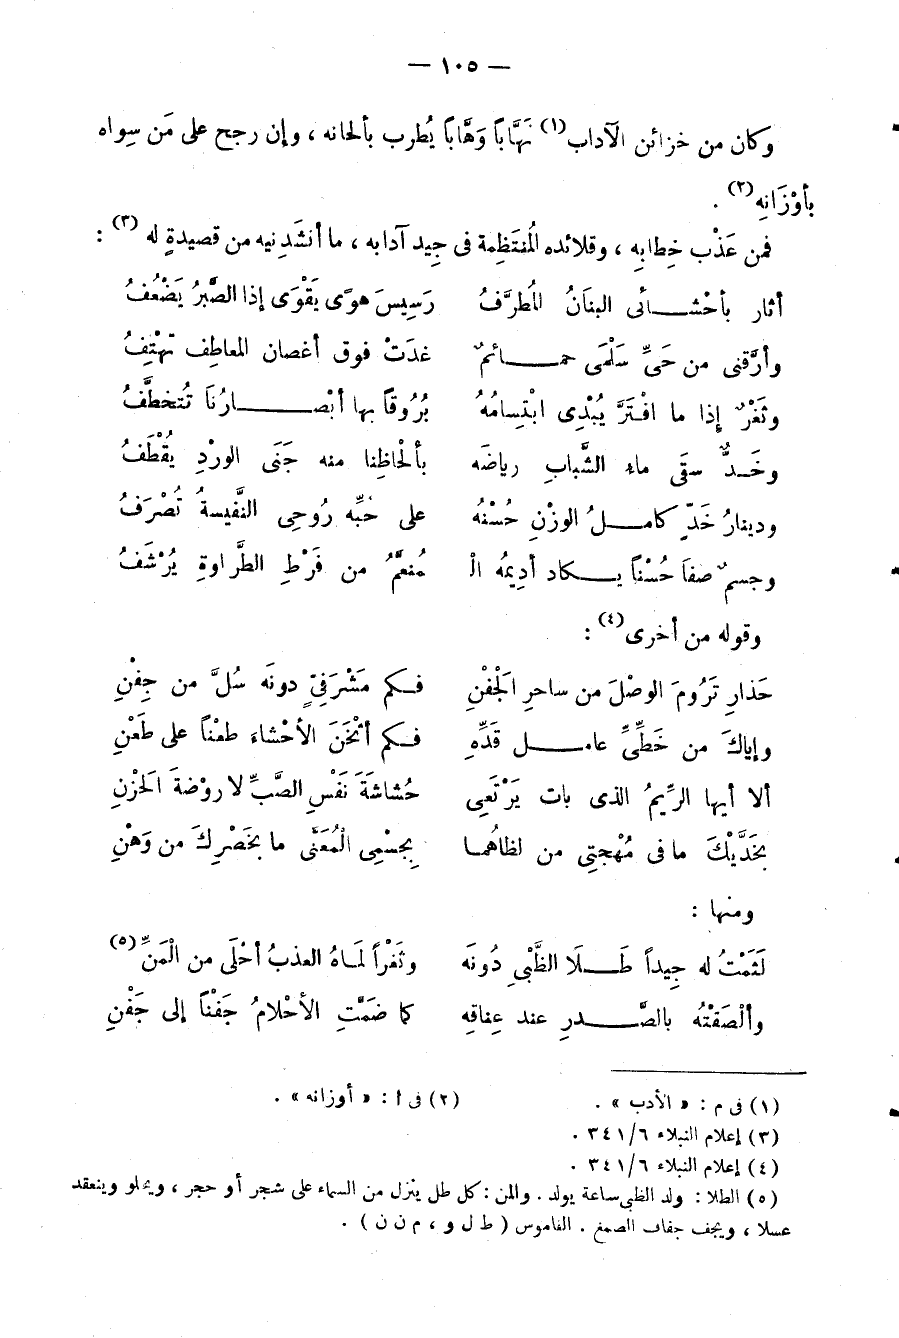 — ١٠٥ —
وكان من خزائن الآداب(١) نَهَّاباً وَهَّاباً يُطرب بألحانه ، وإن رجح على مَن سِواه
بأوْزَانِه(٢) .
فمن عَذْب خِطابِه ، وقلائده المُنتَظِمة فى جِيد آدابه ، ما أنشَدنِيه من قصيدةٍ له(٣) :
أثار بأحْشــائى البنَانُ المُطرَّفُ رَسِيسَ هوًى يَقْوَى إذا الصَّبْرُ يَضْعُفُ
وأرَّقنى من حَىِّ سَلْمَى حمــائمٌ غدَتْ فوق أغصان المعاطِف تَهْتِفُ
وثَغْرٌ إِذا ما افْتَرَّ يُبْدِى ابْتِسامُهُ بُرُوقاً بها أبْصــارُنَا تُتخطَّفُ
وخَــدٌّ سقَى ماءِ الشَّبابِ رياضَه بألْحاظِنا منه جَنَى الورْدِ يُقْطَفُ
ودينارُ خَدٍّ كامــلُ الوزْنِ حُسْنُه على حُبِّه رُوحِى النَّفيسةُ تُصْرَفُ
وجسمٌ صفاَ حُسْناً يــكاد أدِيمُه الْـ مُنعَّمُ من فَرْطِ الطَّراوةِ يُرْشَفُ
وقوله من أخرى(٤) :
حَذارِ تَرُومَ الوصْلَ من ساحرِ الجَفْنِ فــكم مَشْرَفِىٍّ دونَه سُلَّ من جِفْنِ
وإياكَ من خَطِّىِّ عامــل قَدِّهِ فــكم أثْخَنَ الأحْشاءَ طعْناً على طَعْنِ
ألا أيها الرِّيمُ الذى بات يَرْتَعِى حُشاشَةَ نَفْسِ الصَّبِّ لا روْضةَ الحَزْنِ
بخَدَّيْكَ ما فى مُهْجتِى من لظاهُمــا بِجسْمِى الْمُعَنَّى ما بخَصْرِكَ من وَهْنِ
ومنها :
لَثَمْتُ له جِيداً طَــلَا الظَّبْىِ دُونَه وثَغْراً لَمــاهُ العذبُ أحْلَى من الْمَنِّ(٥)
وألْصَقْتُه بالصَّــدرِ عند عِناقِه كما ضَمَّتِ الأحْلامُ جَفْناً إلى جَفْنِ
(١) فى م : « الأدب » . (٢) فى ا : « أوزانه » .
(٣) إعلام النبلاء ٣٤١/٦ .
(٤) إعلام النبلاء ٣٤١/٦ .
(٥) الطلا : ولد الظبى ساعة يولد . والمن : كل طل ينزل من السماء على شجر أو حجر ، ويحلو وينعقد
عسلا ، ويجف جفاف الصمغ . القاموس ( ط ل و ، م ن ن ) .